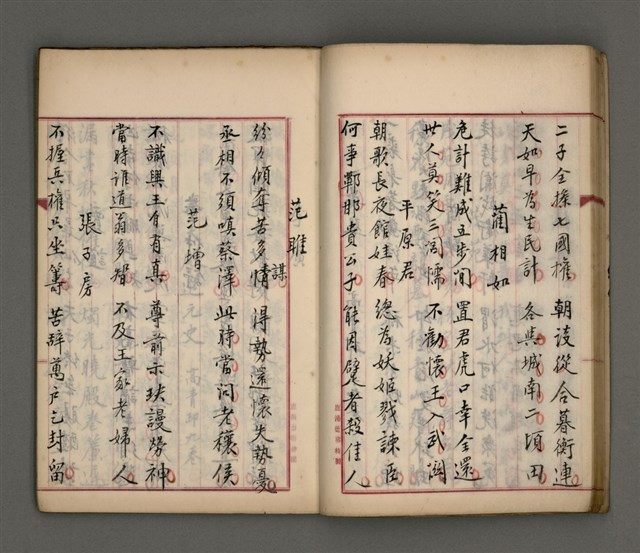 二子全操七國權　朝談從合暮衡連
天如早為生民計　各與城南二頃田
藺相如
危計難成五步間　置君虎口幸全還
世人莫笑三閭懦　不勸懷王入武關
平原君
朝歌長夜館娃春　總為妖姬戮諫臣
何事鄲邯貴公子　能因躄者殺佳人
范雎
紛々傾奪苦多情謀　得勢還懷失勢憂
丞相不須嗔蔡澤　此時當問老穰侯
范增
不識興王自有真　尊前示玦謾勞神
當時誰道翁多智　不及王家老婦人
張子房
不握兵權只坐籌　苦辭萬戶乞封留